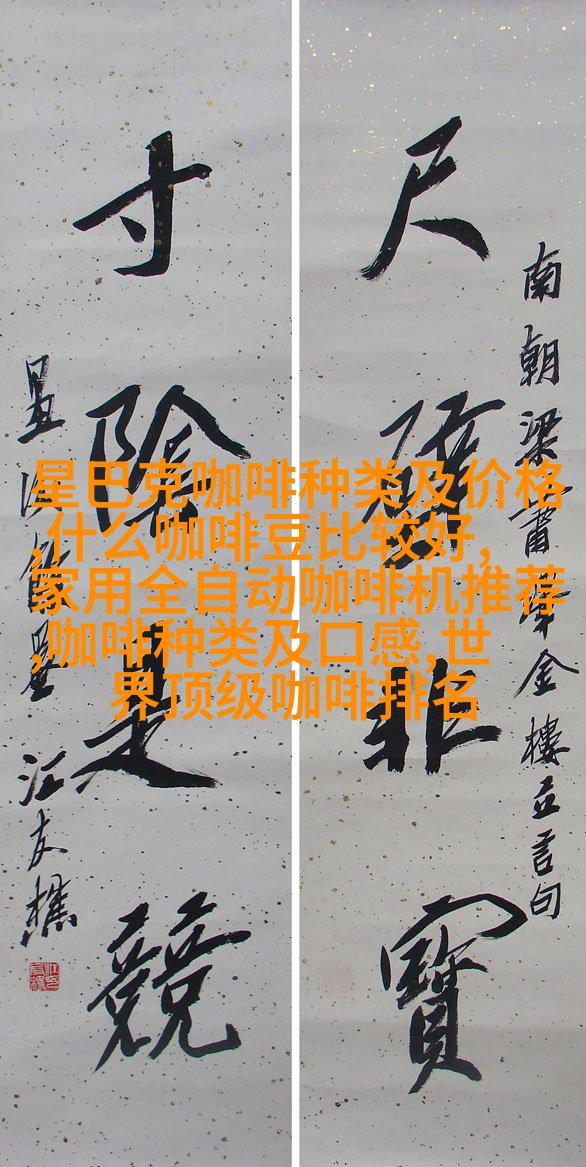 尺璧非寶
南朝梁蕭金樓立言句
寸陰是競
江友樵
星巴克咖啡种类及价格
,什么咖啡豆比较好,
家用全自动咖啡机推荐
,咖啡种类及口感,世
界顶级咖啡排名